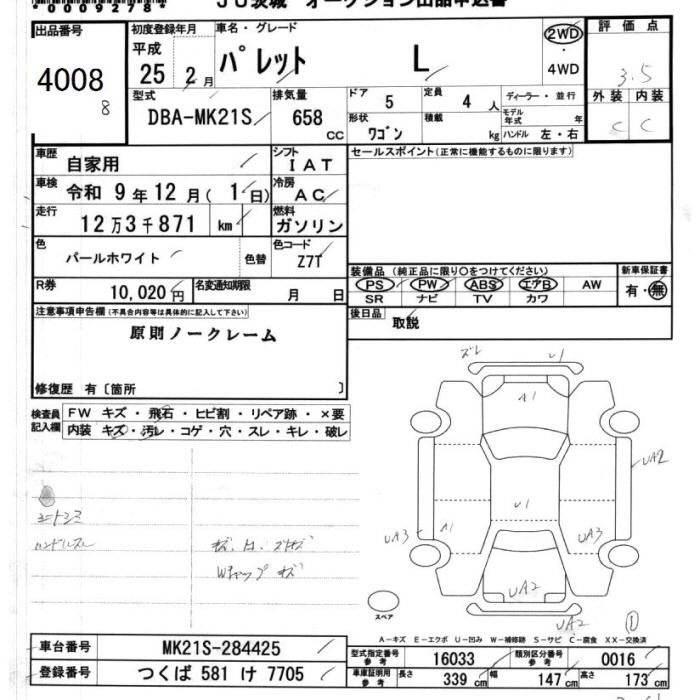 *0009278*
JU茨城 オークション出品申込書
出品番号
4008
8
初度登録年月
平成
25 2月
車名・グレード
パレット L
2WD
・
4WD
評価点
3.5
外装 内装
C C
型式
DBA-MK21S
排気量
658
cc
ドア 5
定員 4 人
ディーラー・並行
形状
ワゴン
積載
kg
モデル年式 年
ハンドル 左・右
車歴
自家用
シフト
IAT
セールスポイント(正常に機能するものに限ります)
車検
令和 9年 12月 ( 1 日)
冷房
AC
走行
12万3千871 km
燃料
ガソリン
色
パールホワイト
色替
色コード
Z7T
装備品 (純正品に限り○をつけてください)
PS PW ABS エアB AW
SR ナビ TV カワ
新車保証書
有・無
R券
10,020円
名変通知期限
月 日
後日品
取説
注意事項申告欄(不具合内容等は具体的に記入して下さい)
原則ノークレーム
修復歴 有〔箇所 〕
検査員
記入欄
FW キズ・飛石・ヒビ割・リペア跡・×要
内装 キズ・汚レ・コゲ・穴・スレ・キレ・破レ
シートシミ
ハンドルスレ
Wキャップ キズ
ズレ
U1
A1
UA2
U1
UA3
A1
UA3
UA2
UA2
①
スペア
A-キズ E-エクボ U-凹み W-補修跡 S-サビ C-腐食 XX-交換済
車台番号
MK21S-284425
登録番号
つくば 581 け 7705
型式指定番号
参考
16033
類別区分番号
参考
0016
車庫証明用
参考
長さ 339 cm
幅 147 cm
高さ 173 cm